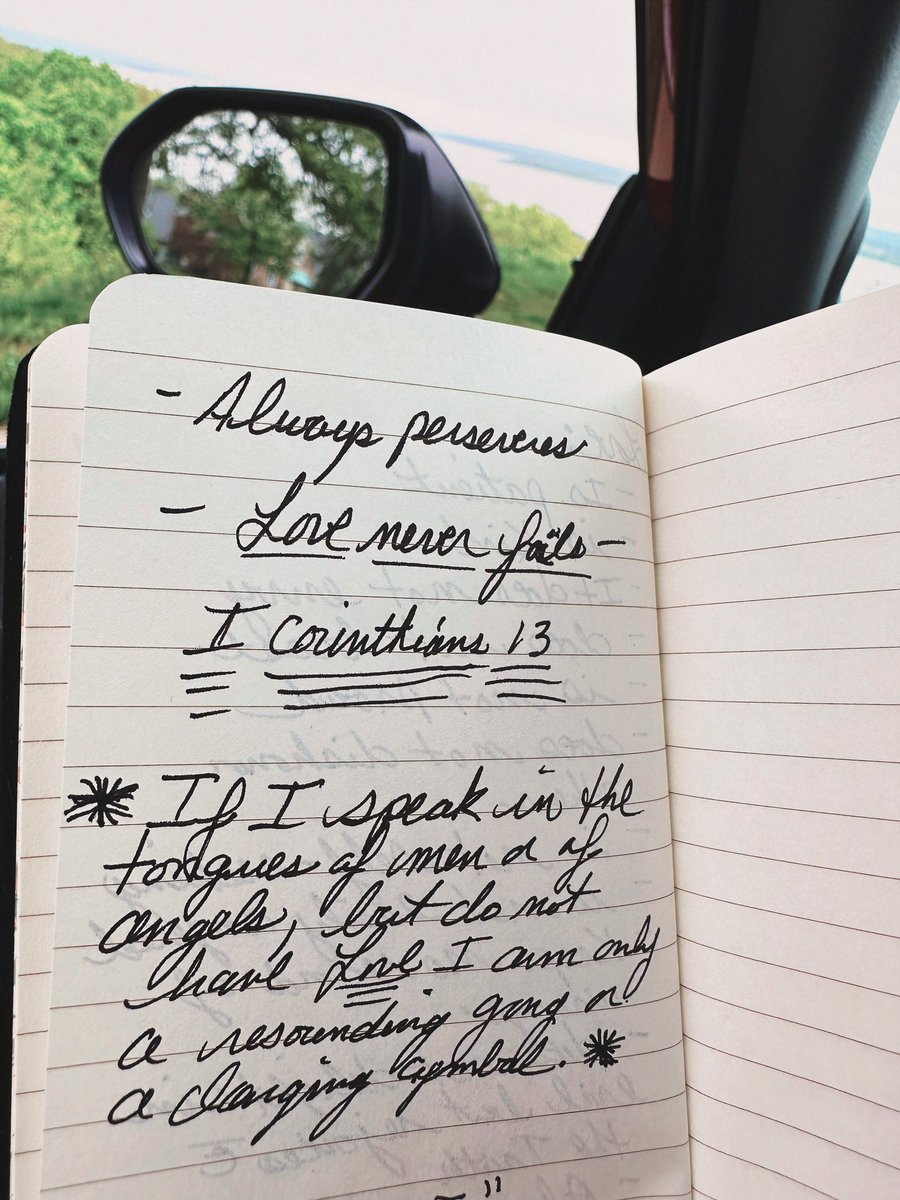 - Always perseveres
- Love never fails -
I Corinthians 13
If I speak in the
tongues of men or of
angels, but do not
have Love I am only
a resounding gong or
a clanging cymbal.